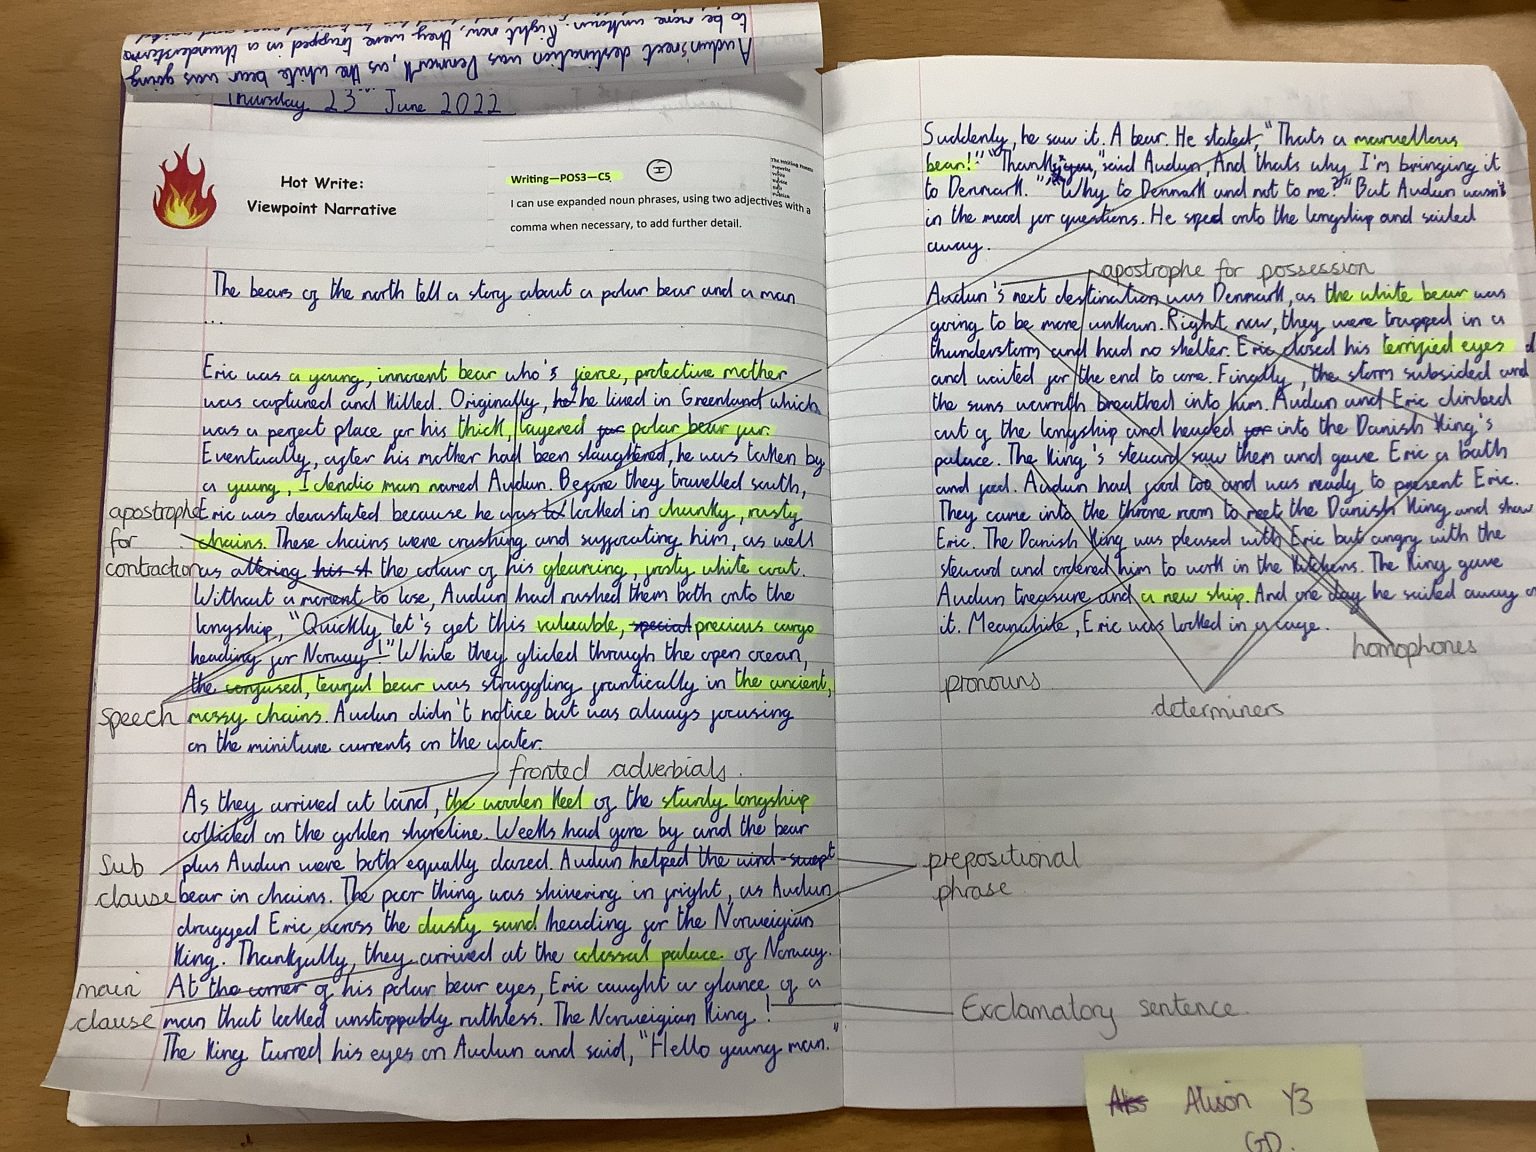 Audun's next destination was Denmark, as the white bear was going
to be more unkown. Right now, they were trapped in a thunderstorm
Thursday 23rd June 2022
Hot Write:
Viewpoint Narrative
Writing—POS3—C5
I
I can use expanded noun phrases, using two adjectives with a
comma when necessary, to add further detail.
The bears of the north tell a story about a polar bear and a man
...
Eric was a young, innocent bear who's fierce, protective mother
was captured and killed. Originally, he he lived in Greenland which
was a perfect place for his thick, layered fur polar bear fur.
Eventually, after his mother had been slaughtered, he was taken by
a young, Iclendic man named Audun. Before they travelled south,
Eric was devastated because he was to locked in chunky, rusty
chains. These chains were crushing and suffocating him, as well
as altering his st the colour of his gleaming, frosty white coat.
Without a moment to lose, Audun had rushed them both onto the
longship, "Quickly let's get this valuable, special precious cargo
heading for Norway!" While they glided through the open ocean,
the confused, tearful bear was struggling frantically in the ancient,
mossy chains. Audun didn't notice but was always focusing
on the minitune currents on the water.
apostrophe
for
contraction
speech
fronted adverbials.
As they arrived at land, the wooden keel of the sturdy longship
collided on the golden shoreline. Weeks had gone by and the bear
plus Audun were both equally dazed. Audun helped the wind-swept
bear in chains. The poor thing was shivering in fright, as Audun
dragged Eric across the dusty sand heading for the Norweigian
King. Thankfully, they arrived at the colossal palace of Norway.
At the corner of his polar bear eyes, Eric caught a glance of a
man that looked unstoppably ruthless. The Norweigian King!
The King turned his eyes on Audun and said, "Hello young man."
Sub
clause
main
clause
Suddenly, he saw it. A bear. He stated, "Thats a marvellous
bear!" "Thank you," said Audun, And thats why I'm bringing it
to Denmark." "Why to Denmark and not to me?" But Audun wasn't
in the mood for questions. He sped onto the longship and sailed
away.
apostrophe for possession
Audun's next destination was Denmark, as the white bear was
going to be more unkown. Right now, they were trapped in a
thunderstorm and had no shelter. Eric closed his terrified eyes
and waited for the end to come. Finally, the storm subsided and
the suns warmth breathed into him. Audun and Eric climbed
out of the longship and headed for into the Danish King's
palace. The King's steward saw them and gave Eric a bath
and food. Audun had food too and was ready to present Eric.
They came into the throne room to meet the Danish King and show
Eric. The Danish King was pleased with Eric but angry with the
steward and ordered him to work in the kitchens. The King gave
Audun treasure and a new ship. And one day he sailed away on
it. Meanwhile, Eric was locked in a cage.
homophones
pronouns
determiners
prepositional
phrase
Exclamatory sentence.
Alison Y3
GD.